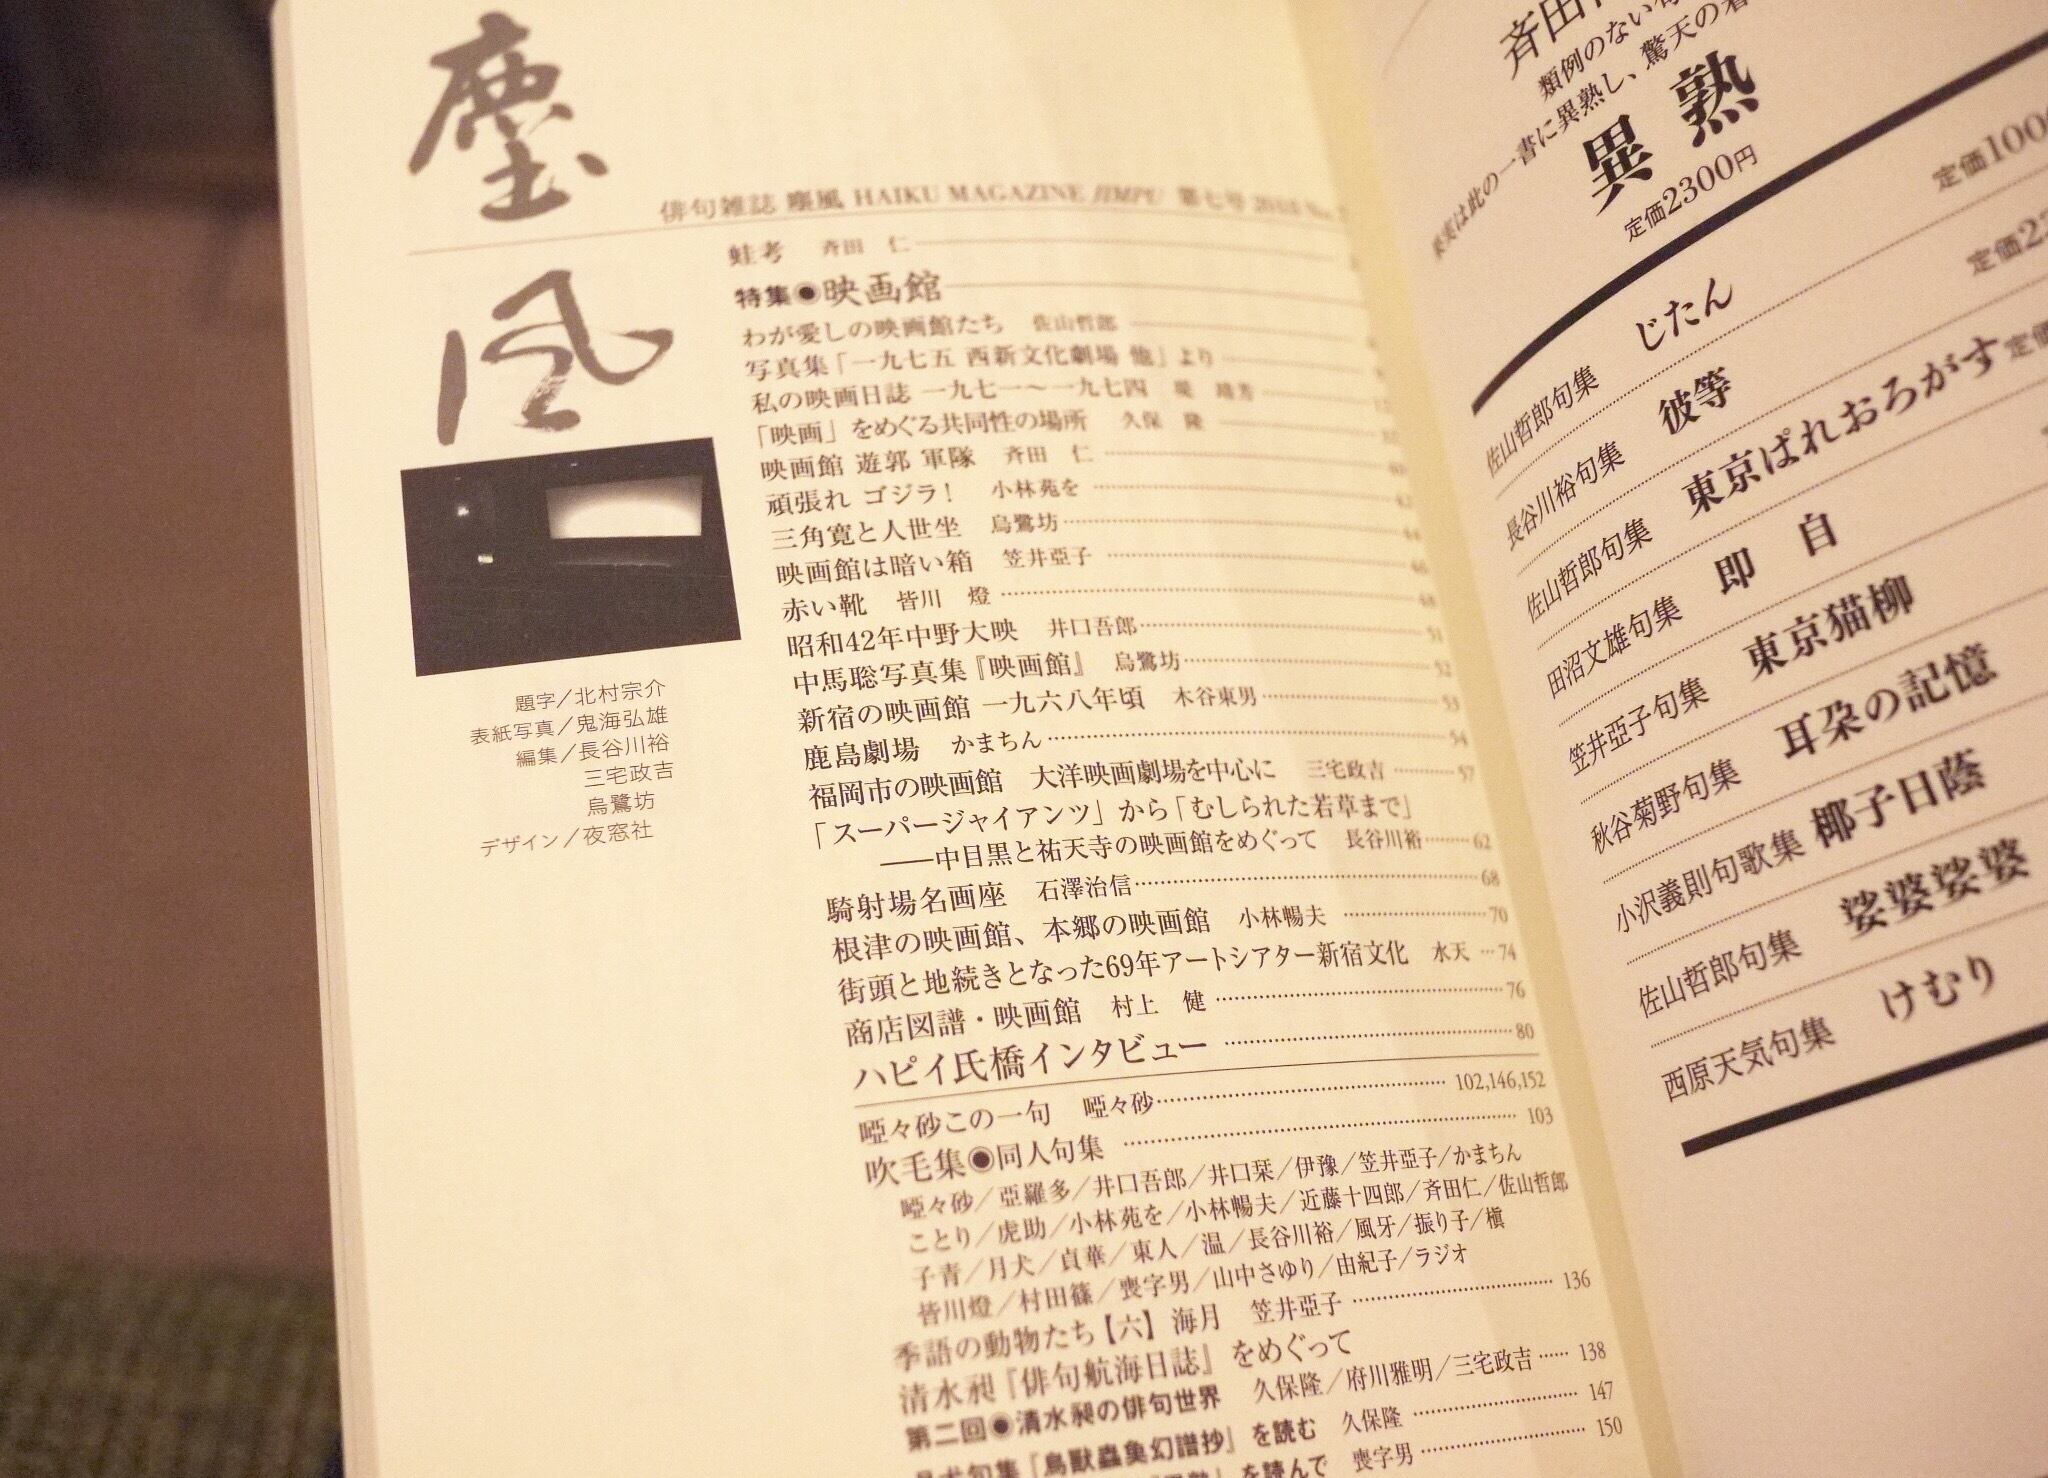 塵風
俳句雑誌 塵風 HAIKU MAGAZINE JIMPU 第七号
蛙考 斉田 仁
特集◉映画館
わが愛しの映画館たち 佐山哲郎
写真集「一九七五 西新文化劇場 他」より
私の映画日誌 一九七一〜一九七四 堤 雄芳
「映画」をめぐる共同性の場所 久保 隆
映画館 遊郭 軍隊 斉田 仁
頑張れ ゴジラ! 小林苑を
三角寛と人世坐 烏鷺坊
映画館は暗い箱 笠井亞子
赤い靴 皆川 燈 48
昭和42年中野大映 井口吾郎 51
中馬聡写真集『映画館』 烏鷺坊 52
新宿の映画館 一九六八年頃 木谷東男 53
鹿島劇場 かまちん 54
福岡市の映画館 大洋映画劇場を中心に 三宅政吉 57
「スーパージャイアンツ」から「むしられた若草まで」
——中目黒と祐天寺の映画館をめぐって 長谷川裕 62
騎射場名画座 石澤治信 68
根津の映画館、本郷の映画館 小林暢夫 70
街頭と地続きとなった69年アートシアター新宿文化 水天 74
商店図譜・映画館 村上 健 76
ハピイ氏橋インタビュー 80
啞々砂この一句 啞々砂 102,146,152
吹毛集◉同人句集 103
啞々砂/亞羅多/井口吾郎/井口栞/伊豫/笠井亞子/かまちん
ことり/虎助/小林苑を/小林暢夫/近藤十四郎/斉田仁/佐山哲郎
子青/月犬/貞華/東人/温/長谷川裕/風牙/振り子/槇
皆川燈/村田篠/喪字男/山中さゆり/由紀子/ラジオ
季語の動物たち【六】海月 笠井亞子 136
清水昶『俳句航海日誌』をめぐって
第二回◉清水昶の俳句世界 久保隆/府川雅明/三宅政吉 138
月犬句集『鳥獣蟲魚幻譜抄』を読む 久保隆 147
を読んで 喪字男 150
題字/北村宗介
表紙写真/鬼海弘雄
編集/長谷川裕
三宅政吉
烏鷺坊
デザイン/夜窓社
斉田
類例のない
果実は此の一書に異熟し、驚天の
異熟
定価2300円
定価1000
佐山哲郎句集 じたん
定価
長谷川裕句集 彼等
佐山哲郎句集 東京ぱれおろがす 定価
田沼文雄句集 即自
笠井亞子句集 東京猫柳
秋谷菊野句集 耳朶の記憶
小沢義則句歌集 椰子日蔭
佐山哲郎句集 娑婆娑婆
西原天気句集 けむり